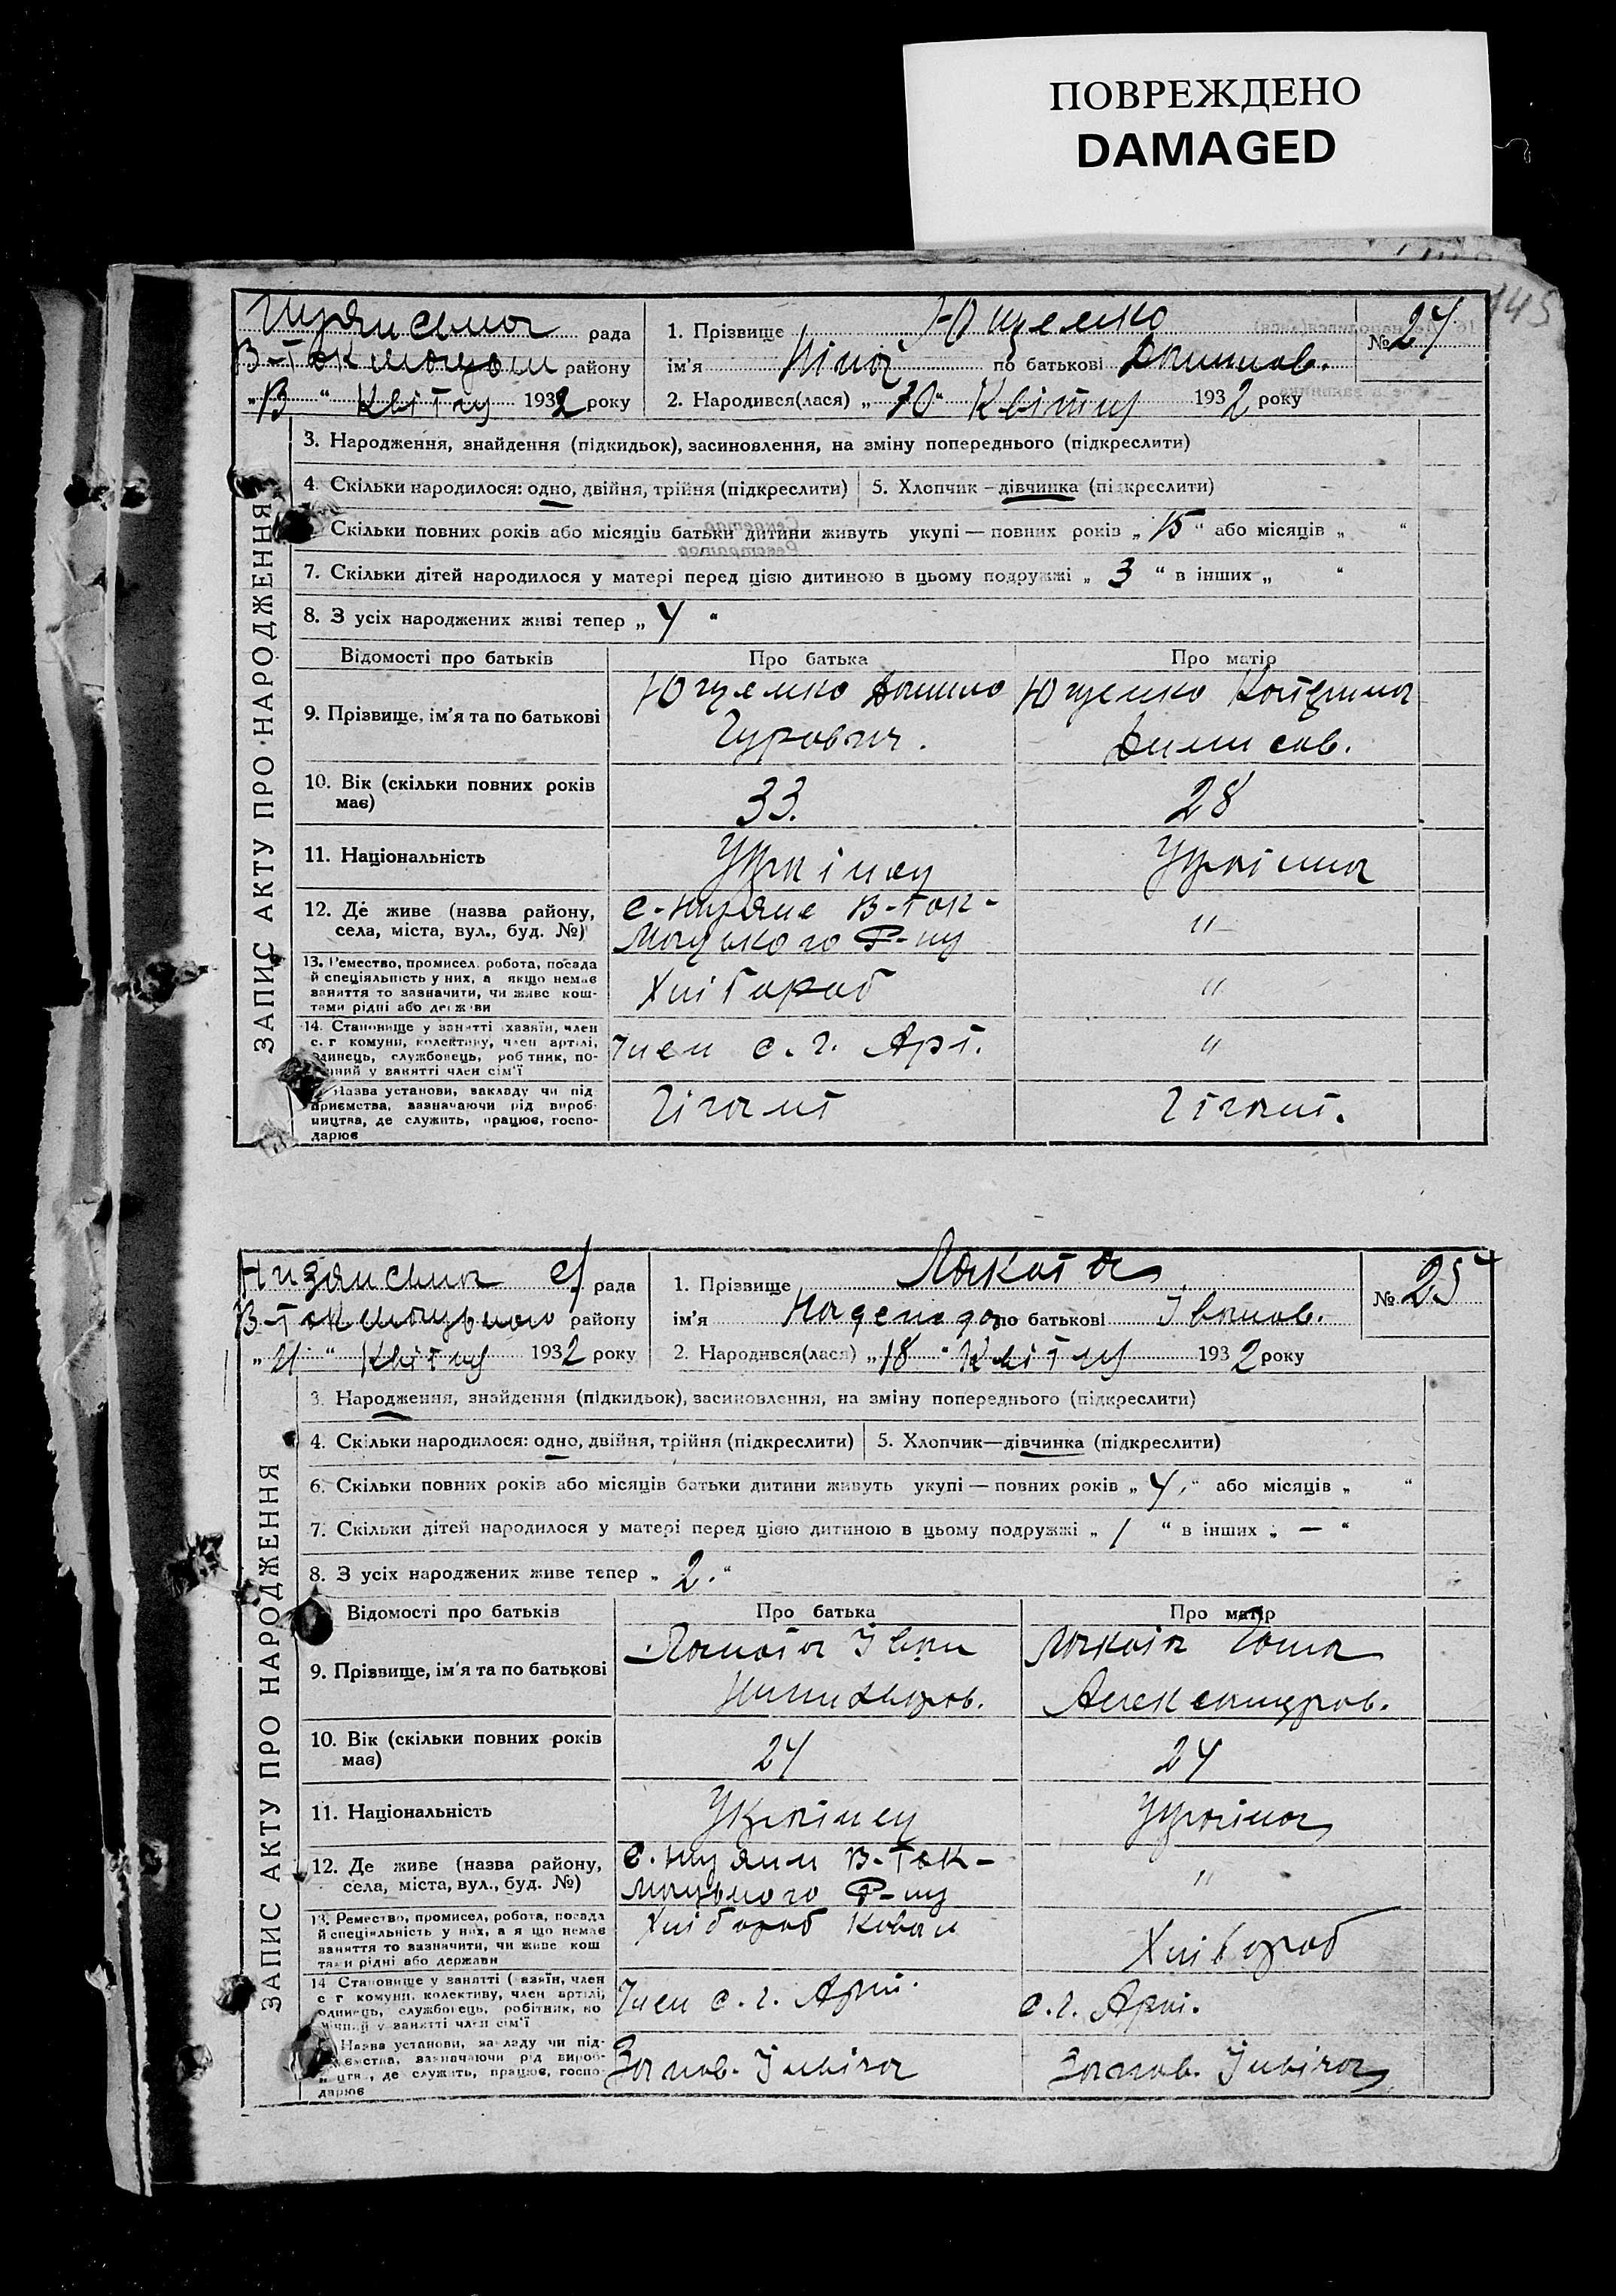 ПОВРЕЖДЕНО
DAMAGED
145
рада
В-Токмацьк району
"13" Квітня 1932 року
1. Прізвище Ющенко
№ 24
ім'я Ніна по батькові Данилов.
2. Народився(лася) "10" Квітня 1932 року
ЗАПИС АКТУ ПРО НАРОДЖЕННЯ
3. Народження, знайдення (підкидьок), засиновлення, на зміну попереднього (підкреслити)
4. Скільки народилося: одно, двійня, трійня (підкреслити) 5. Хлопчик – дівчинка (підкреслити)
Скільки повних років або місяців батьки дитини живуть укупі — повних років „15“ або місяців „ “
7. Скільки дітей народилося у матері перед цією дитиною в цьому подружжі „3“ в інших „ “
8. З усіх народжених живі тепер „4“
Відомості про батьків Про батька Про матір
9. Прізвище, ім'я та по батькові Ющенко Данило Гурович. Ющенко Катерина Денисов.
10. Вік (скільки повних років має) 33. 28
11. Національність Українец Українка
12. Де живе (назва району, села, міста, вул., буд. №) с. Низяне В-Ток-мацького Р-ну "
13. Ремество, промисел, робота, посада й спеціяльність у них, а якщо немає заняття то зазначити, чи живе коштами рідні або держави Хлібороб "
14. Становище у занятті хазяїн, член с. г комуни, колективу, член артілі, одинець, службовець, робітник, по- у занятті член сім'ї Член с. г. Арт. "
Назва установи, закладу чи підприємства, зазначаючи рід виробництва, де служить, працює, господарює Гігант Гігант.
Низянська с/ рада
В-Токмацького району
"21" Квітня 1932 року
1. Прізвище Лакота
№ 25
ім'я Надежда по батькові Іванов.
2. Народився(лася) „18“ Квітня 1932 року
ЗАПИС АКТУ ПРО НАРОДЖЕННЯ
3. Народження, знайдення (підкидьок), засиновлення, на зміну попереднього (підкреслити)
4. Скільки народилося: одно, двійня, трійня (підкреслити) 5. Хлопчик—дівчинка (підкреслити)
6. Скільки повних років або місяців батьки дитини живуть укупі — повних років „4“ або місяців „ “
7. Скільки дітей народилося у матері перед цією дитиною в цьому подружжі „1“ в інших „—“
8. З усіх народжених живе тепер „2.“
Відомості про батьків Про батька Про матір
9. Прізвище, ім'я та по батькові Лакота Іван Лакота Александров.
10. Вік (скільки повних років має) 24 24
11. Національність Українец Українка
12. Де живе (назва району, села, міста, вул., буд. №) с. Низяни В-Ток-мацького Р-ну "
13. Ремество, промисел, робота, посада й спеціяльність у них, а якщо немає заняття то зазначити, чи живе коштами рідні або держави Хлібороб Коваль Хлібороб
14 Становище у занятті (хазяїн, член с г комуни, колективу, член артілі, одинець, службовець, робітник, у занятті член сім'ї Член с. г. Арт. с. г. Арт.
Назва установи, закладу чи підприємства, зазначаючи рід вироб- де служить, працює, господарює